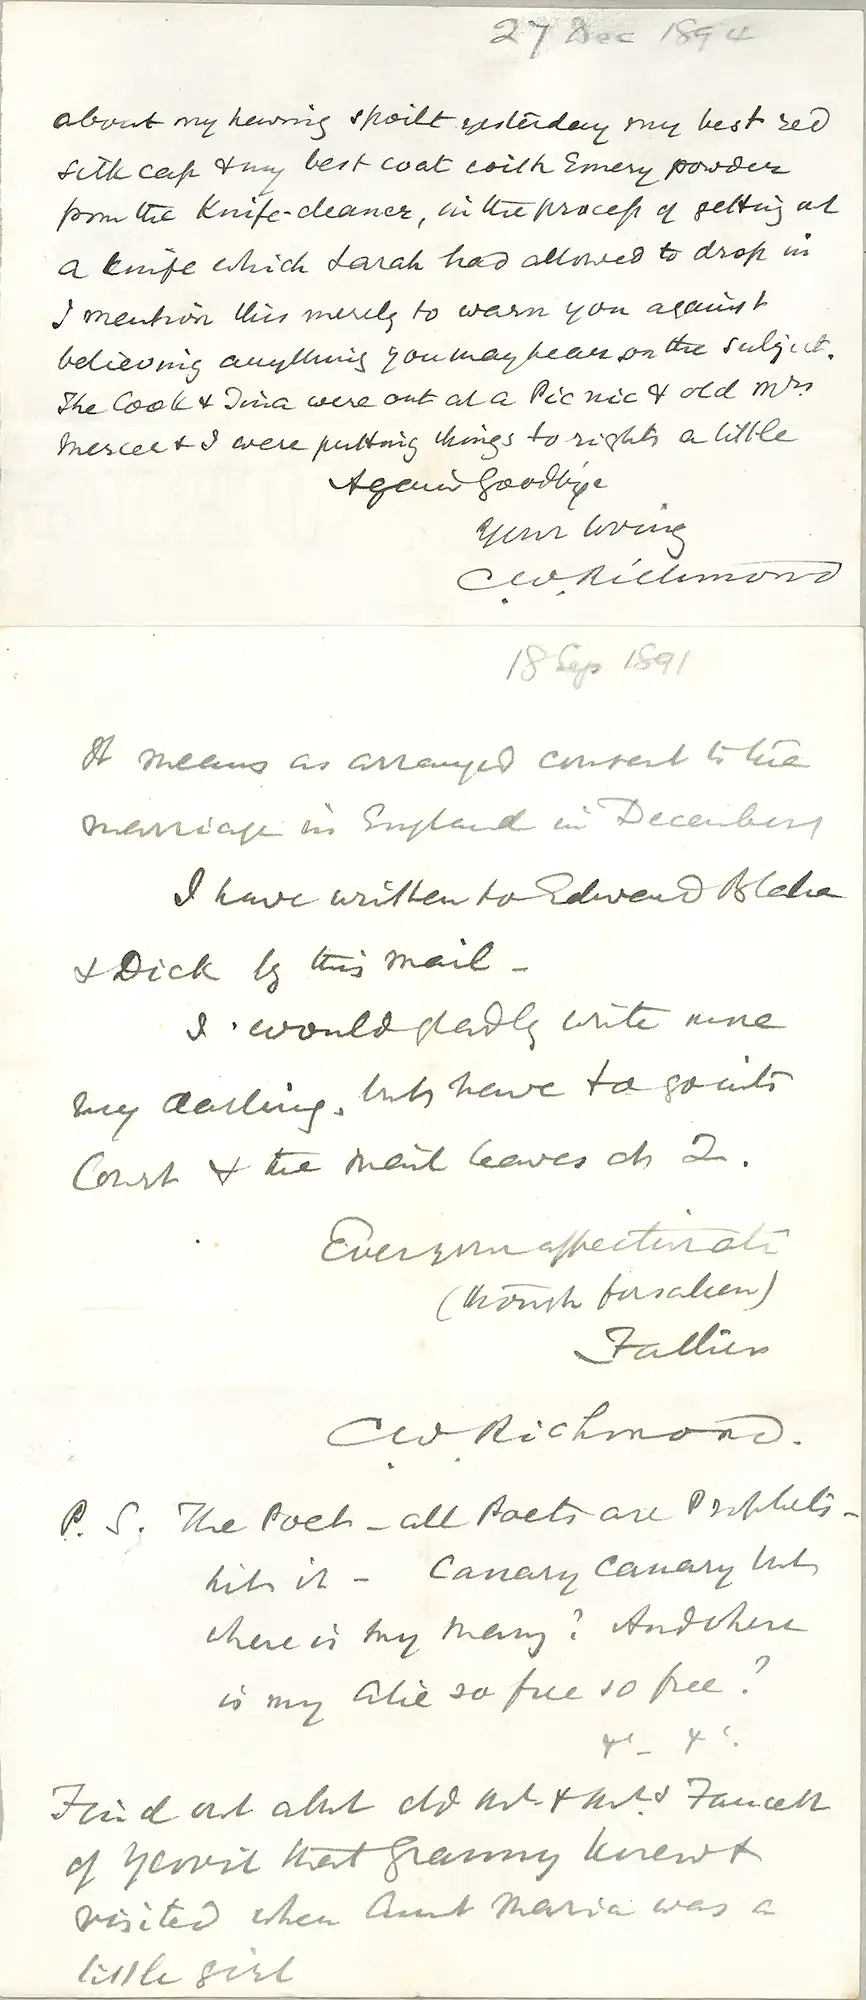 27 Dec 1894
about my having spoilt yesterday my best red
silk cap & my best coat with Emery powder
from the Knife-cleaner, in the process of getting at
a knife which Sarah had allowed to drop in
I mention this merely to warn you against
believing anything you may hear on the subject.
The Cook & Tina were out at a Pic nic & old Mrs
Mercer & I were putting things to rights a little
Again Goodbye
Your loving
C.W. Richmond
18 Sep 1891
It means as arranged consent to the
marriage in England in December
I have written to Edward Blake
& Dick by this mail -
I would gladly write more
my darling, but have to go into
Court & the mail leaves at 2.
Ever your affectionate
(though forsaken)
Father
C.W. Richmond.
P. S. The Poet - all Poets are Prophets -
hits it - Canary Canary but
where is my Mary? And where
is my Alie so free so free?
&c - &c.
Find out abt old Mr & Mrs Faucett
of Yeovil that Granny knew &
visited when Aunt Maria was a
little girl